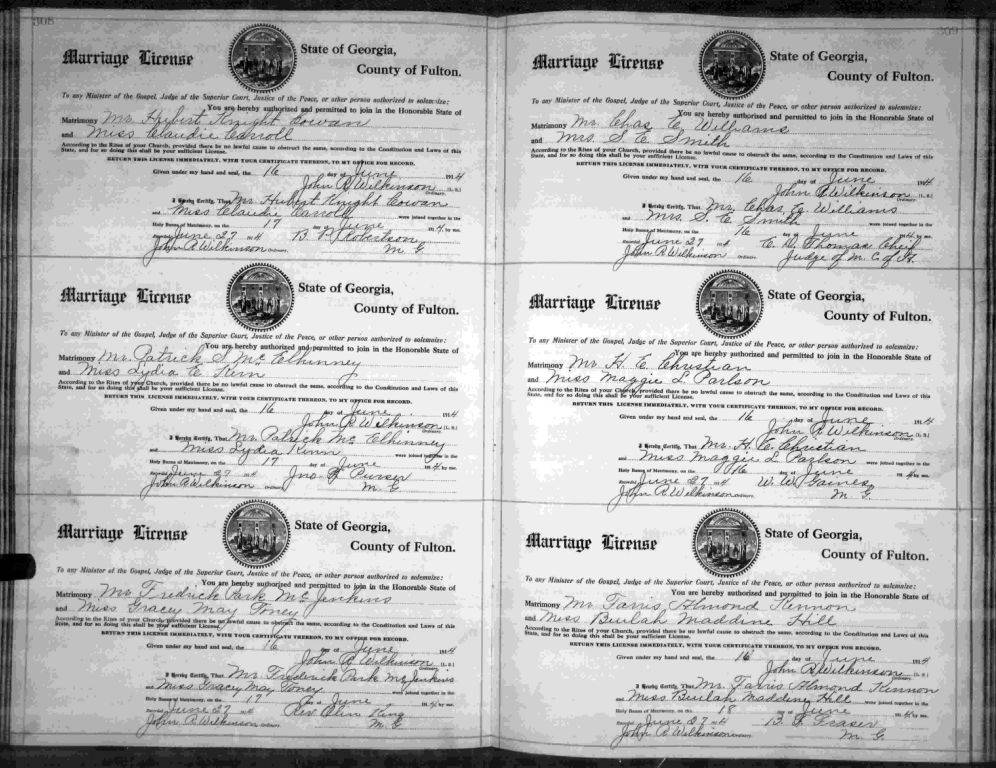 308
Marriage License
State of Georgia,
County of Fulton.
To any Minister of the Gospel, Judge of the Superior Court, Justice of the Peace, or other person authorized to solemnize:
You are hereby authorized and permitted to join in the Honorable State of
Matrimony Mr. Hubert Knight Cowan
and Miss Claudie Carroll
According to the Rites of your Church, provided there be no lawful cause to obstruct the same, according to the Constitution and Laws of this
State, and for so doing this shall be your sufficient License.
RETURN THIS LICENSE IMMEDIATELY, WITH YOUR CERTIFICATE THEREON, TO MY OFFICE FOR RECORD.
Given under my hand and seal, the 16 day of June 1914
John R Wilkinson (L. S.)
Ordinary.
I Hereby Certify, That Mr. Hubert Knight Cowan
and Miss Claudie Carroll were joined together in the
Holy Banns of Matrimony, on the 17 day of June 1914 by me.
Recorded June 27 1914 B. P. Robertson
John R Wilkinson Ordinary. M. G.
Marriage License
State of Georgia,
County of Fulton.
To any Minister of the Gospel, Judge of the Superior Court, Justice of the Peace, or other person authorized to solemnize:
You are hereby authorized and permitted to join in the Honorable State of
Matrimony Mr. Patrick S. Mc Elhinney
and Miss Lydia E. Kinn
According to the Rites of your Church, provided there be no lawful cause to obstruct the same, according to the Constitution and Laws of this
State, and for so doing this shall be your sufficient License.
RETURN THIS LICENSE IMMEDIATELY, WITH YOUR CERTIFICATE THEREON, TO MY OFFICE FOR RECORD.
Given under my hand and seal, the 16 day of June 1914
John R Wilkinson (L. S.)
Ordinary.
I Hereby Certify, That Mr. Patrick Mc Elhinney
and Miss Lydia Kinn were joined together in the
Holy Banns of Matrimony, on the 17 day of June 1914 by me.
Recorded June 27 1914 Jno. F. Purser
John R Wilkinson Ordinary. M. G.
Marriage License
State of Georgia,
County of Fulton.
To any Minister of the Gospel, Judge of the Superior Court, Justice of the Peace, or other person authorized to solemnize:
You are hereby authorized and permitted to join in the Honorable State of
Matrimony Mr. Fredrick Park McJenkins
and Miss Gracey May Toney
According to the Rites of your Church, provided there be no lawful cause to obstruct the same, according to the Constitution and Laws of this
State, and for so doing this shall be your sufficient License.
RETURN THIS LICENSE IMMEDIATELY, WITH YOUR CERTIFICATE THEREON, TO MY OFFICE FOR RECORD.
Given under my hand and seal, the 16 day of June 1914
John R Wilkinson (L. S.)
Ordinary.
I Hereby Certify, That Mr. Fredrick Park McJenkins
and Miss Gracey May Toney were joined together in the
Holy Banns of Matrimony, on the 17 day of June 1914 by me.
Recorded June 27 1914 Rev. Olin King
John R Wilkinson Ordinary. M. G.
309
Marriage License
State of Georgia,
County of Fulton.
To any Minister of the Gospel, Judge of the Superior Court, Justice of the Peace, or other person authorized to solemnize:
You are hereby authorized and permitted to join in the Honorable State of
Matrimony Mr. Chas. E. Williams
and Mrs. S. E. Smith
According to the Rites of your Church, provided there be no lawful cause to obstruct the same, according to the Constitution and Laws of this
State, and for so doing this shall be your sufficient License.
RETURN THIS LICENSE IMMEDIATELY, WITH YOUR CERTIFICATE THEREON, TO MY OFFICE FOR RECORD.
Given under my hand and seal, the 16 day of June 1914
John R Wilkinson (L. S.)
Ordinary.
I Hereby Certify, That Mr. Chas. E. Williams
and Mrs. S. E. Smith were joined together in the
Holy Banns of Matrimony, on the 16 day of June 1914 by me.
Recorded June 27 1914 E. D. Thomas Cheif
John R Wilkinson Ordinary. Judge of M. C. of
Marriage License
State of Georgia,
County of Fulton.
To any Minister of the Gospel, Judge of the Superior Court, Justice of the Peace, or other person authorized to solemnize:
You are hereby authorized and permitted to join in the Honorable State of
Matrimony Mr. H. E. Christian
and Miss Maggie L. Parlson
According to the Rites of your Church, provided there be no lawful cause to obstruct the same, according to the Constitution and Laws of this
State, and for so doing this shall be your sufficient License.
RETURN THIS LICENSE IMMEDIATELY, WITH YOUR CERTIFICATE THEREON, TO MY OFFICE FOR RECORD.
Given under my hand and seal, the 16 day of June 1914
John R Wilkinson (L. S.)
Ordinary.
I Hereby Certify, That Mr. H. E. Christian
and Miss Maggie L. Parlson were joined together in the
Holy Banns of Matrimony, on the 16 day of June 1914 by me.
Recorded June 27 1914 W. W. Gaines
John R Wilkinson Ordinary. M. G.
Marriage License
State of Georgia,
County of Fulton.
To any Minister of the Gospel, Judge of the Superior Court, Justice of the Peace, or other person authorized to solemnize:
You are hereby authorized and permitted to join in the Honorable State of
Matrimony Mr. Farris Almond Kennon
and Miss Beulah Maddine Hill
According to the Rites of your Church, provided there be no lawful cause to obstruct the same, according to the Constitution and Laws of this
State, and for so doing this shall be your sufficient License.
RETURN THIS LICENSE IMMEDIATELY, WITH YOUR CERTIFICATE THEREON, TO MY OFFICE FOR RECORD.
Given under my hand and seal, the 16 day of June 1914
John R Wilkinson (L. S.)
Ordinary.
I Hereby Certify, That Mr. Farris Almond Kennon
and Miss Beulah Maddine Hill were joined together in the
Holy Banns of Matrimony, on the 18 day of June 1914 by me.
Recorded June 27 1914 B. F. Fraser
John R Wilkinson Ordinary. M. G.